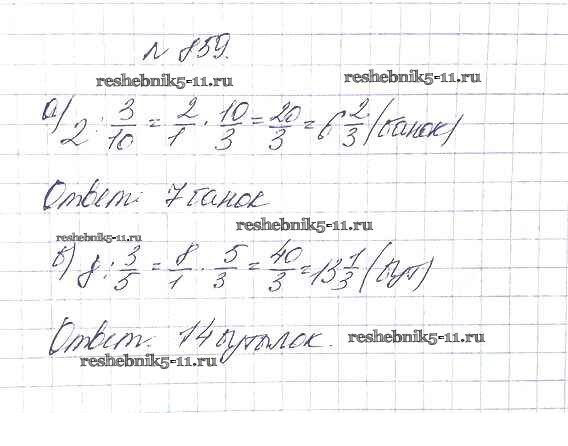 № 859.
reshebnik5-11.ru reshebnik5-11.ru
а) 2 : 3/10 = 2/1 · 10/3 = 20/3 = 6 2/3 (банок)
Ответ: 7 банок
reshebnik5-11.ru
reshebnik5-11.ru
б) 8 : 3/5 = 8/1 · 5/3 = 40/3 = 13 1/3 (бут)
Ответ: 14 бутылок.
reshebnik5-11.ru
reshebnik5-11.ru